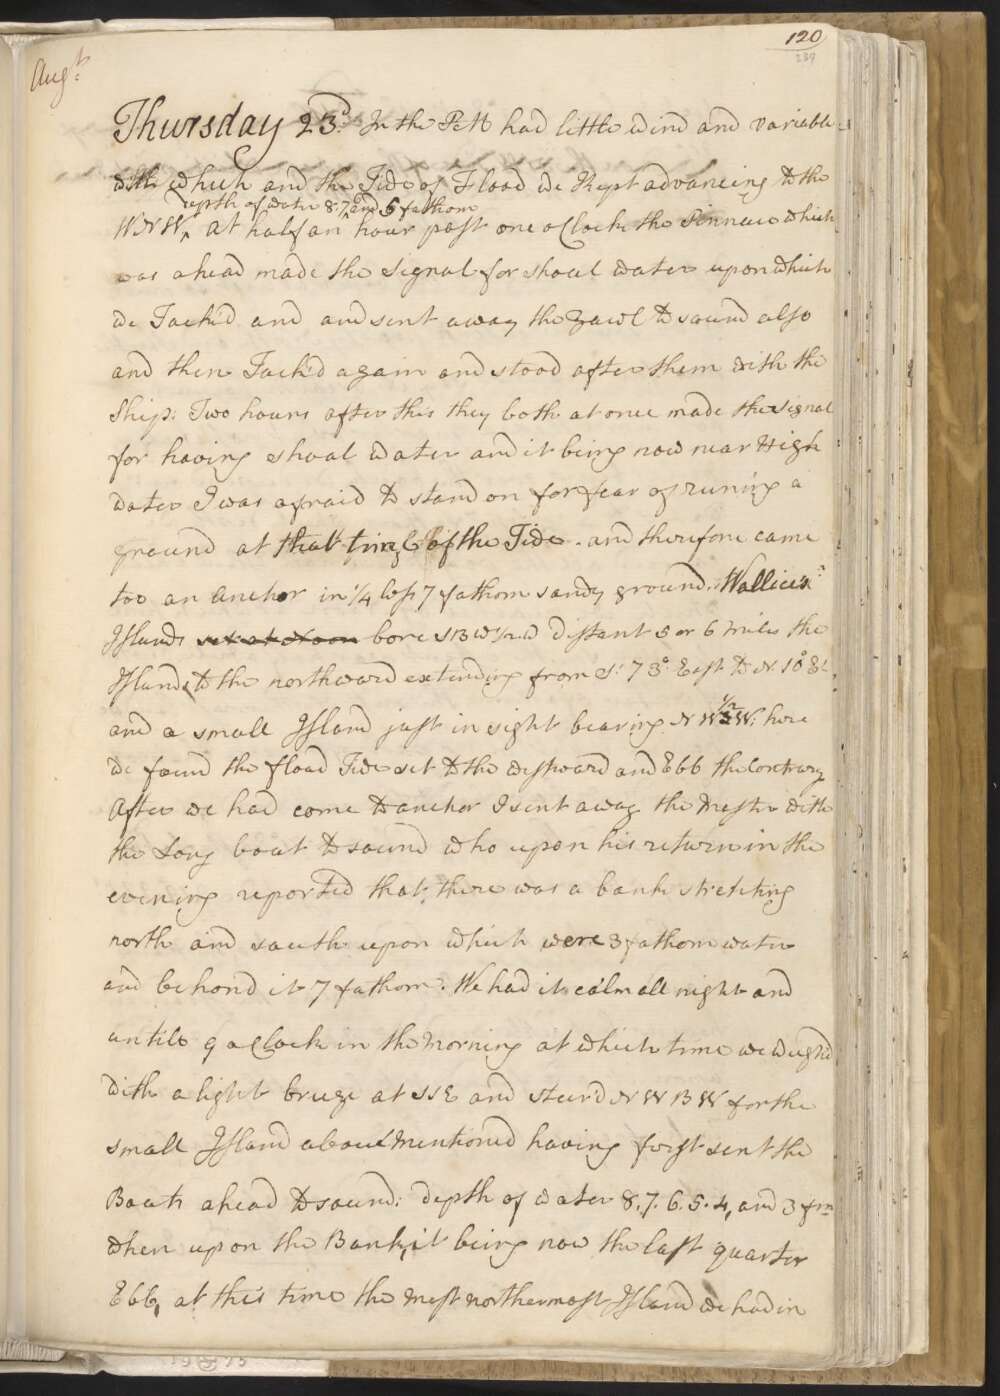 120
239
Augt:
Thursday 23d. In the PM had little wind and variable
with which and the Tide of Flood we kept advancing to the
depth of water 8.7, and 5 fathom
WNW, at half an hour past one oClock the Pinnace which
was ahead made the Signal for shoal water upon which
we Tack'd and and sent away the yawl to sound also
and then Tack'd again and stood after them with the
Ship: Two hours after this they both at once made the signal
for having shoal water and it being now near High
water I was afraid to stand on for fear of runing a
ground at that time of the Tide. and therefore came
too an Anchor in 1/4 less 7 fathom sandy ground. Wallice's
Islands set at Noon bore SBW 1/2 W distant 5 or 6 Miles the
Islands to the northward extending from S. 73° East to N 10° E
and a small Island just in sight bearing NW 1/2 W. here
we found the flood Tide set to the westward and Ebb the Contrary
After we had come to anchor I sent away the Master with
the Long boat to sound who upon his return in the
evening reported that, there was a bank stretching
north and south upon which were 3 fathom water
and behond it 7 fathom. We had it calm all night and
untill 9 oClock in the Morning at which time we weigh'd
with a light breeze at SSE and steer'd NWBW for the
small Island above Mentioned having first sent the
Boats ahead to sound: depth of water 8. 7. 6. 5. 4, and 3 fm
when upon the Bank, it being now the last quarter
Ebb, at this time the most northermost Island we had in